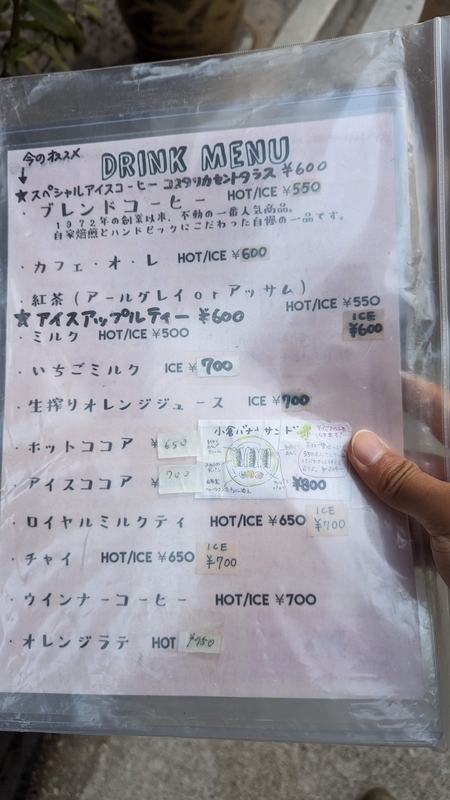 今のオススメ
↓
DRINK MENU
★スペシャルアイスコーヒー コスタリカセントタラス ¥600
・ブレンドコーヒー HOT/ICE ¥550
1972年の創業以来、不動の一番人気商品。
自家焙煎とハンドピックにこだわった自慢の一品です。
・カフェ・オ・レ HOT/ICE ¥600
・紅茶(アールグレイorアッサム) HOT/ICE ¥550
ICE ¥600
★アイスアップルティー ¥600
・ミルク HOT/ICE ¥500
・いちごミルク ICE ¥700
・生搾りオレンジジュース ICE ¥700
小倉バナナサンド
・ホットココア ¥650
・アイスココア ¥700
¥800
・ロイヤルミルクティ HOT/ICE ¥650 ICE ¥700
・チャイ HOT/ICE ¥650 ICE ¥700
・ウインナーコーヒー HOT/ICE ¥700
・オレンジラテ HOT ¥750